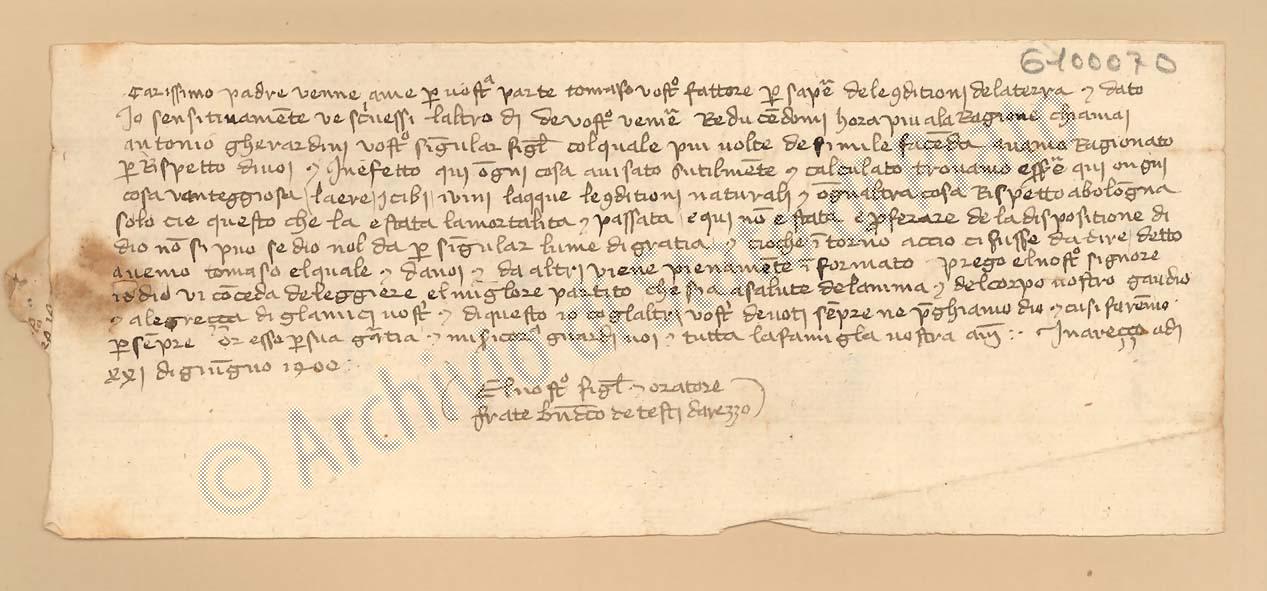 6100070
Carissimo padre venne ame p vostª parte tomaso vostº fattore p sapē dele 9ditioni delaterra ⁊ dato
Io sensitivamēte ve scuessi laltro di de vostº venire Reducēdomi hora piu ala Ragione chiamai
antonio gherardini vostº sīgular figl̄ colquale piu volte de simile facēda avamo Ragionato
p Rispetto di voi ⁊ In efetto qui ōgni cosa avisato sutilmēte ⁊ calculato trovamo essē qui ongni
cosa vanteggiosa laere i cibi i vini lacque le 9ditioni naturali ⁊ ōgnaltra cosa Rispetto abologna
solo cie questo che la e stata lamortalita ⁊ passata e qui nō e stata e pferare de la dispositione di
dio nō si puo se dio nol da p sīgular lume di gratia ⁊ cioche ītorno accio ci fusse da dire detto
avemo tomaso elquale ⁊ da voi ⁊ da altri viene pienamēte īformato prego el nostº signore
idio vi cōceda de leggiere el miglore partito che sia a salute delanima ⁊ del corpo vostro gaudio
⁊ alegrecça di glamici vostī ⁊ di questo io co glaltri vostī devoti sēpre ne pghiamo dio ⁊ cusi farēmo
p sēpre ōr esso p sua grātia ⁊ misicorᵃ guardi voi ⁊ tutta la famigla vostra am̄ Inarecço adi
xxi di giungno 1400
El vostº figl̄ ⁊ oratore
frate bn̄dco de testi darezzo
© Archivio di Stato di Prato